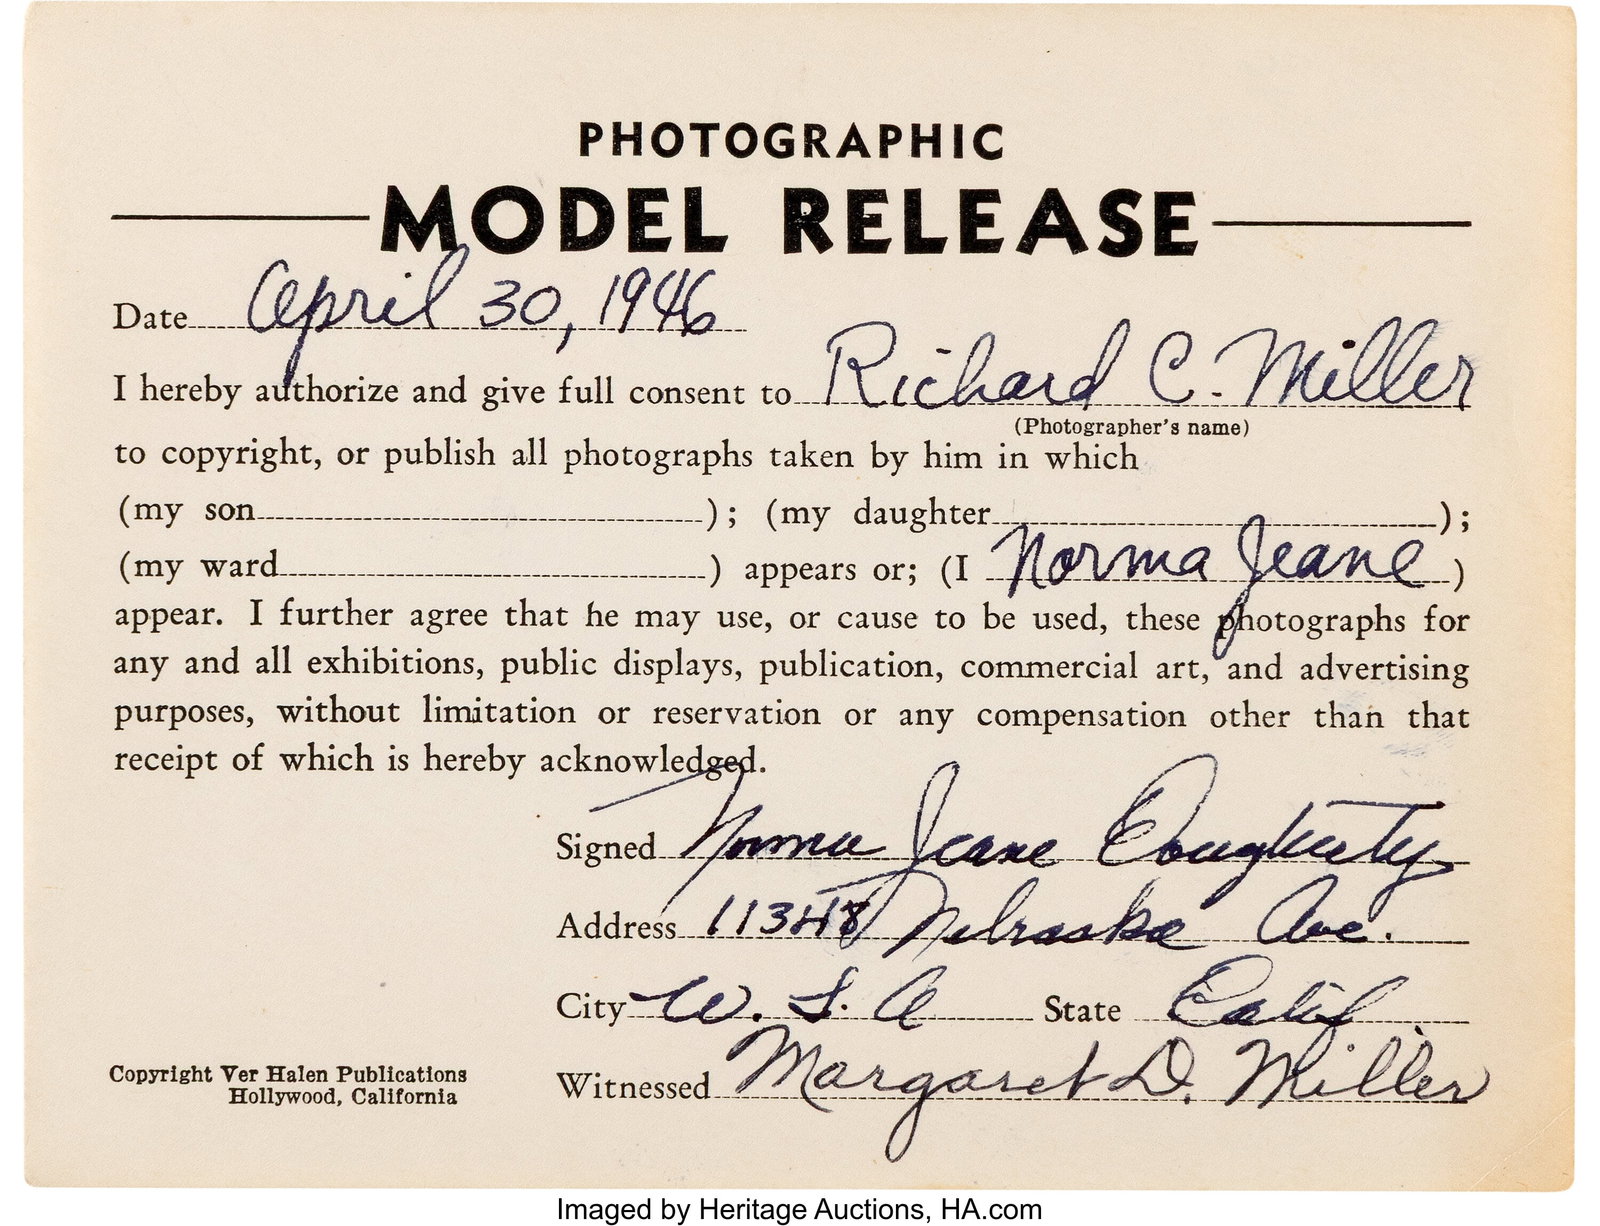 PHOTOGRAPHIC
MODEL RELEASE
Date April 30, 1946
I hereby authorize and give full consent to Richard C. Miller
(Photographer's name)
to copyright, or publish all photographs taken by him in which
(my son); (my daughter);
(my ward) appears or; (I Norma Jeane)
appear. I further agree that he may use, or cause to be used, these photographs for
any and all exhibitions, public displays, publication, commercial art, and advertising
purposes, without limitation or reservation or any compensation other than that
receipt of which is hereby acknowledged.
Signed Norma Jeane Dougherty
Address 11348 Nebraska Ave.
City W. L. A State Calif.
Witnessed Margaret D. Miller
Copyright Ver Halen Publications
Hollywood, California
Imaged by Heritage Auctions, HA.com